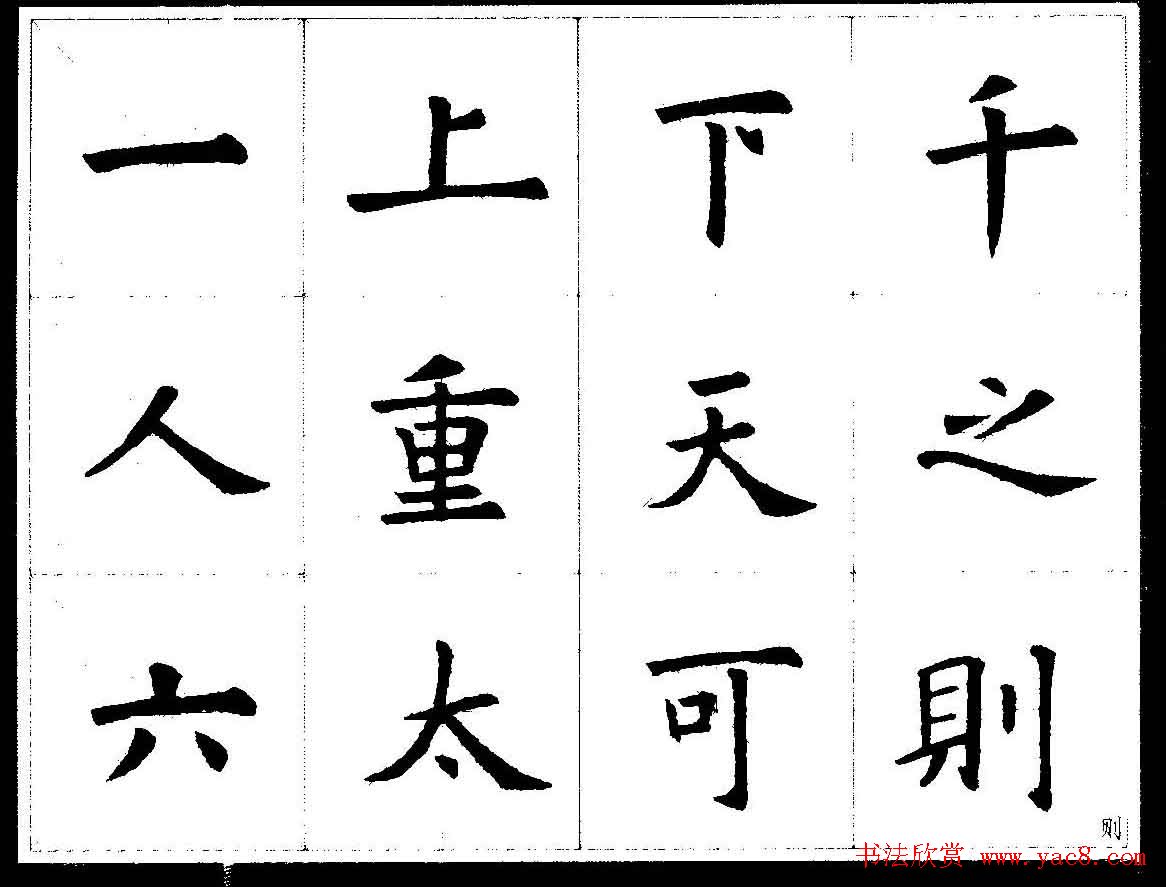 一上下千
人重天之
六太可則
则
书法欣赏 www.yac8.com